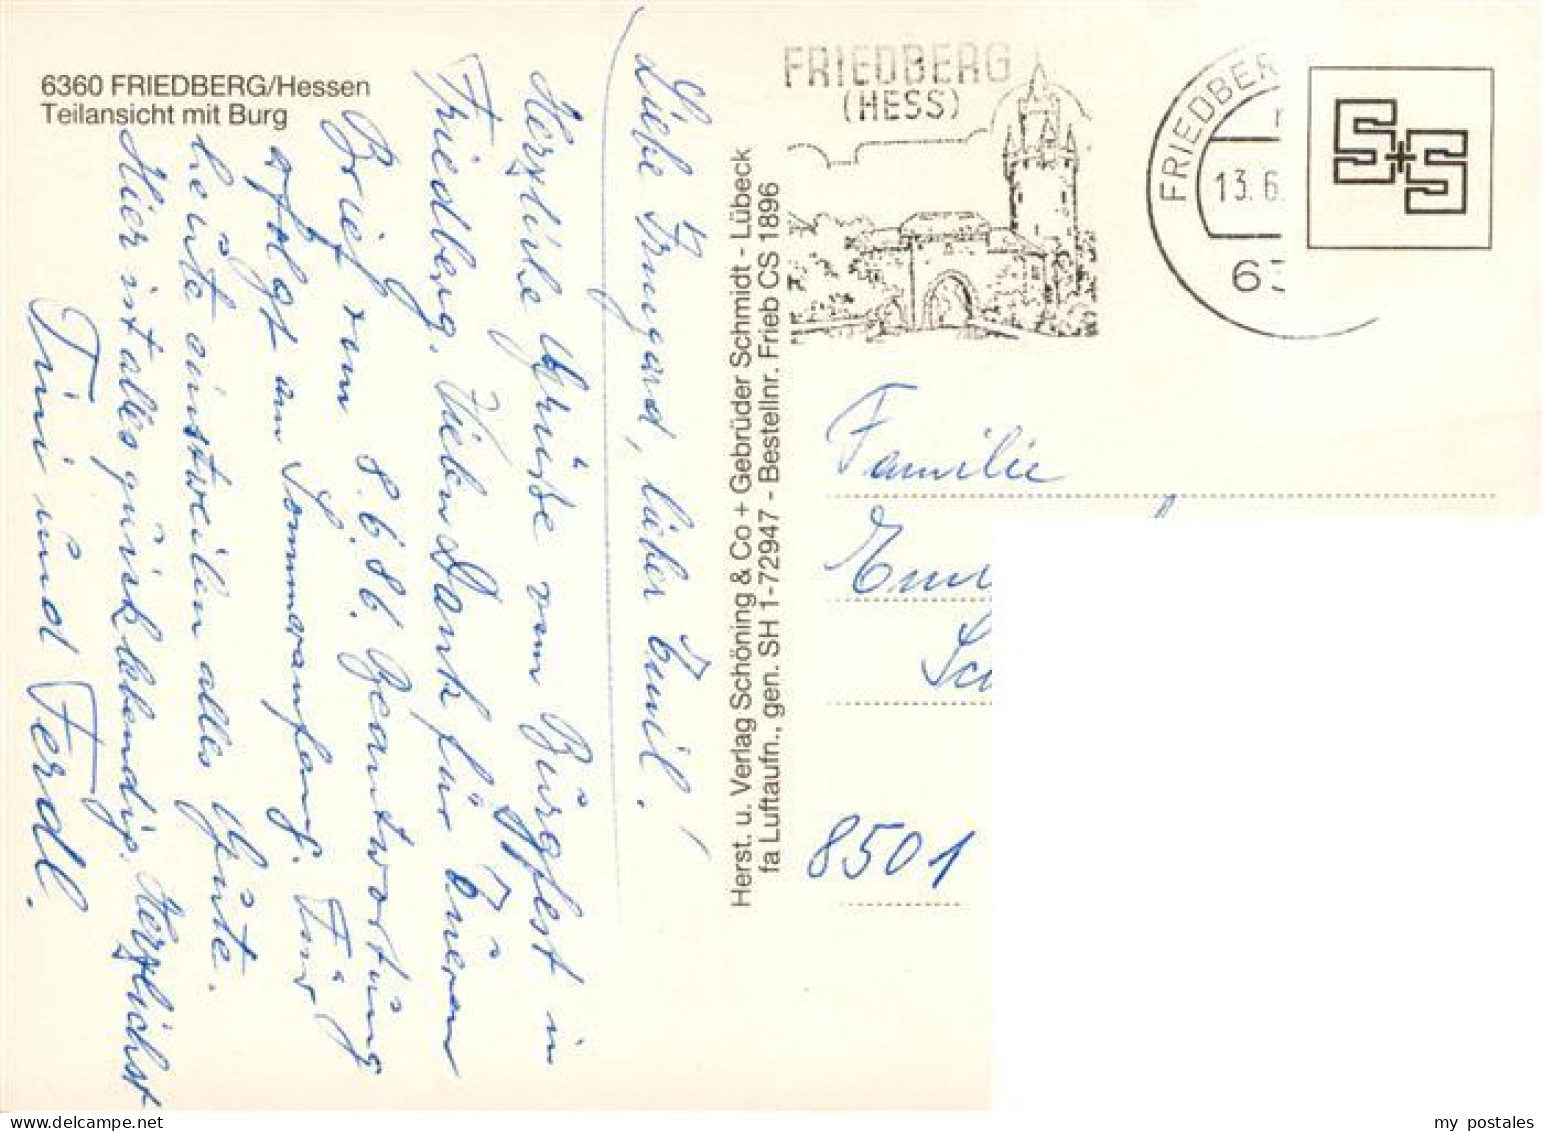 6360 FRIEDBERG/Hessen
Teilansicht mit Burg
Liebe Irmgard, lieber Emil!
Herzliche Grüße vom Burgfest in
Friedberg. Vielen Dank für Eueren
Brief vom 8.6.86. Beantwortung
erfolgt am Sommeranfang. Für
heute einstweilen alles Gute.
Hier ist alles quicklebendig. Herzlichst
Tini und Ferdl.
Herst. u. Verlag Schöning & Co + Gebrüder Schmidt - Lübeck
fa Luftaufn., gen. SH 1-72947 - Bestellnr. Frieb CS 1896
FRIEDBERG
(HESS)
FRIEDBER
13.6.
63
S+S
Familie
8501
my postales